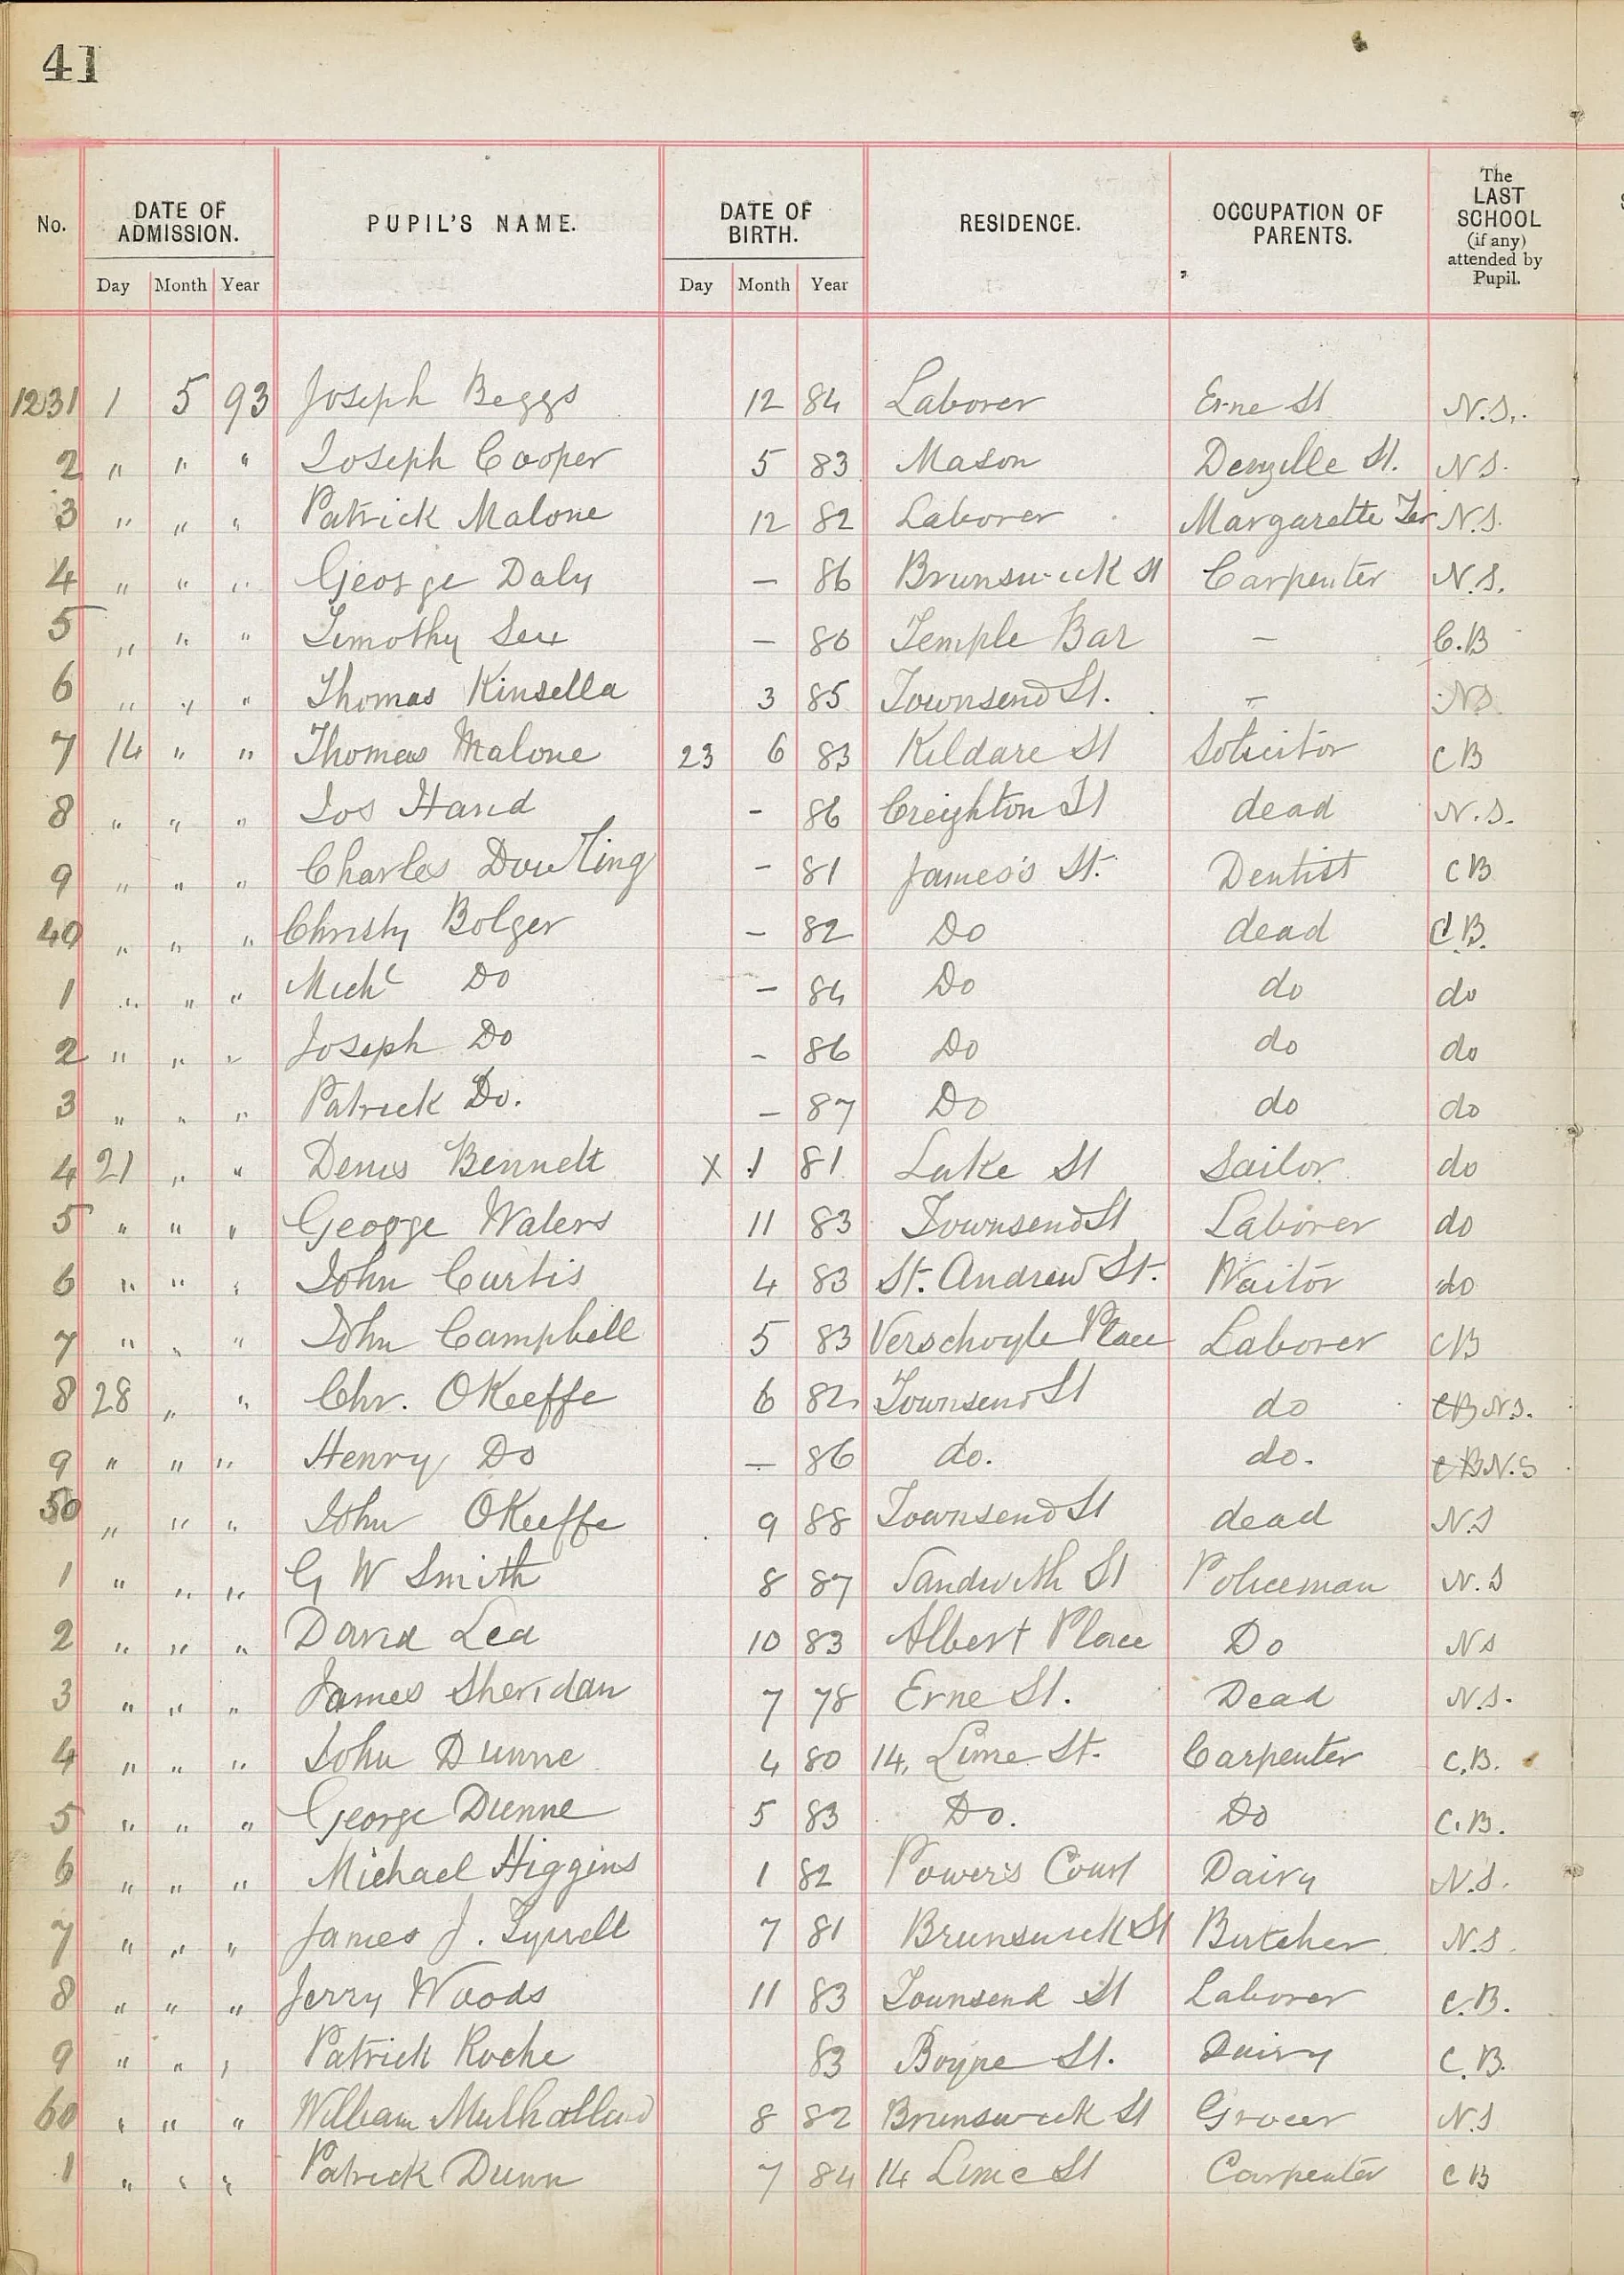 41
No. DATE OF ADMISSION. PUPIL'S NAME. DATE OF BIRTH. RESIDENCE. OCCUPATION OF PARENTS. The LAST SCHOOL (if any) attended by Pupil.
Day Month Year Day Month Year
1231 1 5 93 Joseph Beggs 12 84 Laborer Erne St N.S.
2 " " " Joseph Cooper 5 83 Mason Denzille St. N S.
3 " " " Patrick Malone 12 82 Laborer Margarette Ter N.S.
4 " " " George Daly — 86 Brunswick St Carpenter N.S.
5 " " " Timothy Sex — 80 Temple Bar — C.B
6 " " " Thomas Kinsella 3 85 Townsend St. — NS
7 14 " " Thomas Malone 23 6 83 Kildare St Solicitor C B
8 " " " Jos Hand - 86 Creighton St dead N.S.
9 " " " Charles Dowling - 81 James's St. Dentist C B
40 " " " Christy Bolger - 82 Do dead C B.
1 " " " Michl Do - 84 Do do do
2 " " " Joseph Do - 86 Do do do
3 " " " Patrick Do. - 87 Do do do
4 21 " " Denis Bennett X 1 81 Luke St Sailor do
5 " " " George Waters 11 83 Townsend St Laborer do
6 " " " John Curtis 4 83 St. Andrew St. Waitor do
7 " " " John Campbell 5 83 Verschoyle Place Laborer CB
8 28 " " Chr. OKeeffe 6 82 Townsend St do CB N.S.
9 " " " Henry Do — 86 do. do. C B N.S
50 " " " John OKeeffe 9 88 Townsend St dead N.S
1 " " " G W Smith 8 87 Sandwith St Policeman N.S
2 " " " David Lea 10 83 Albert Place Do N s
3 " " " James Sheridan 7 78 Erne St. Dead N.S.
4 " " " John Dunne 4 80 14, Lime St. Carpenter C.B.
5 " " " George Dunne 5 83 Do. Do C.B.
6 " " " Michael Higgins 1 82 Power's Court Dairy N.S.
7 " " " James J. Tyrrell 7 81 Brunswick St Butcher N.S.
8 " " " Jerry Woods 11 83 Townsend St Laborer C.B.
9 " " " Patrick Roche 83 Boyne St. Dairy C.B.
60 " " " William Mulholland 8 82 Brunswick St Grocer N.S
1 " " " Patrick Dunn 7 84 14 Lime St Carpenter C B